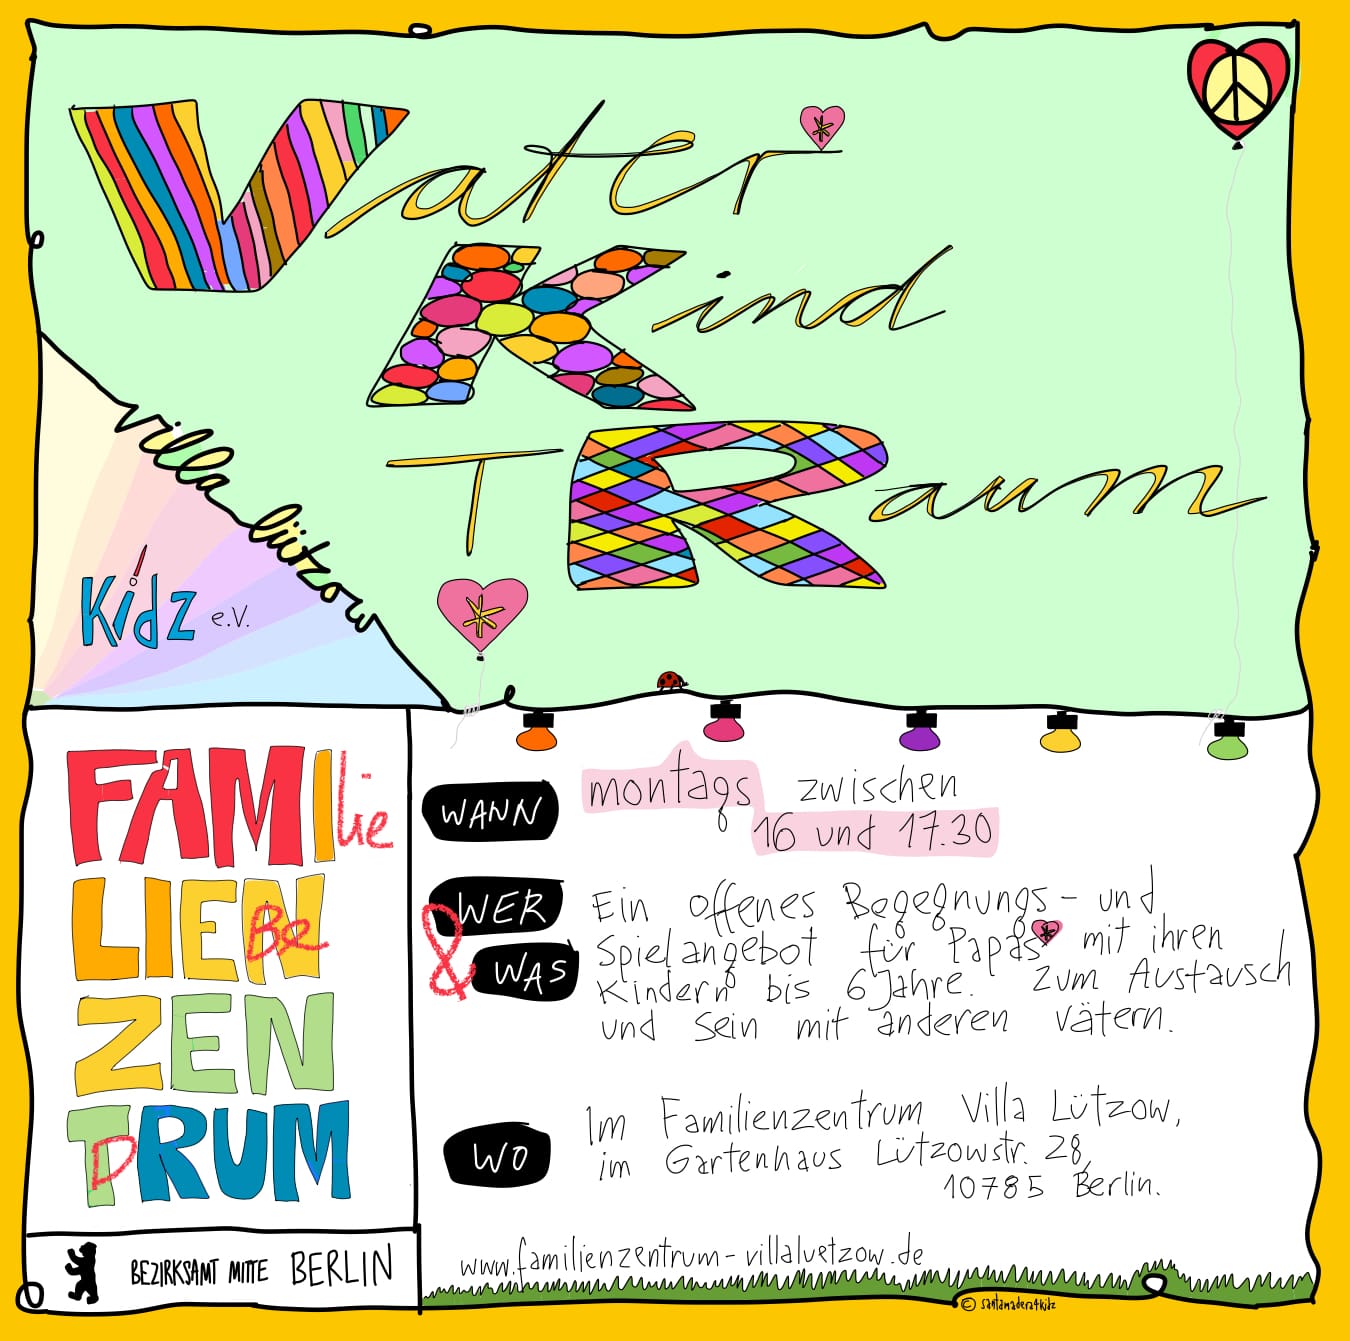 Vater
Kind
TRaum
villa lützow
Kidz e.V.
FAMIlie
LIEN
Be
ZEN
TRUM
D
BEZIRKSAMT MITTE BERLIN
WANN
montags zwischen
16 und 17.30
WER
& WAS
Ein offenes Begegnungs- und
Spielangebot für Papas* mit ihren
Kindern bis 6 Jahre. Zum Austausch
und Sein mit anderen Vätern.
WO
Im Familienzentrum Villa Lützow,
im Gartenhaus Lützowstr. 28,
10785 Berlin.
www.familienzentrum-villaluetzow.de
© santamadera4kidz